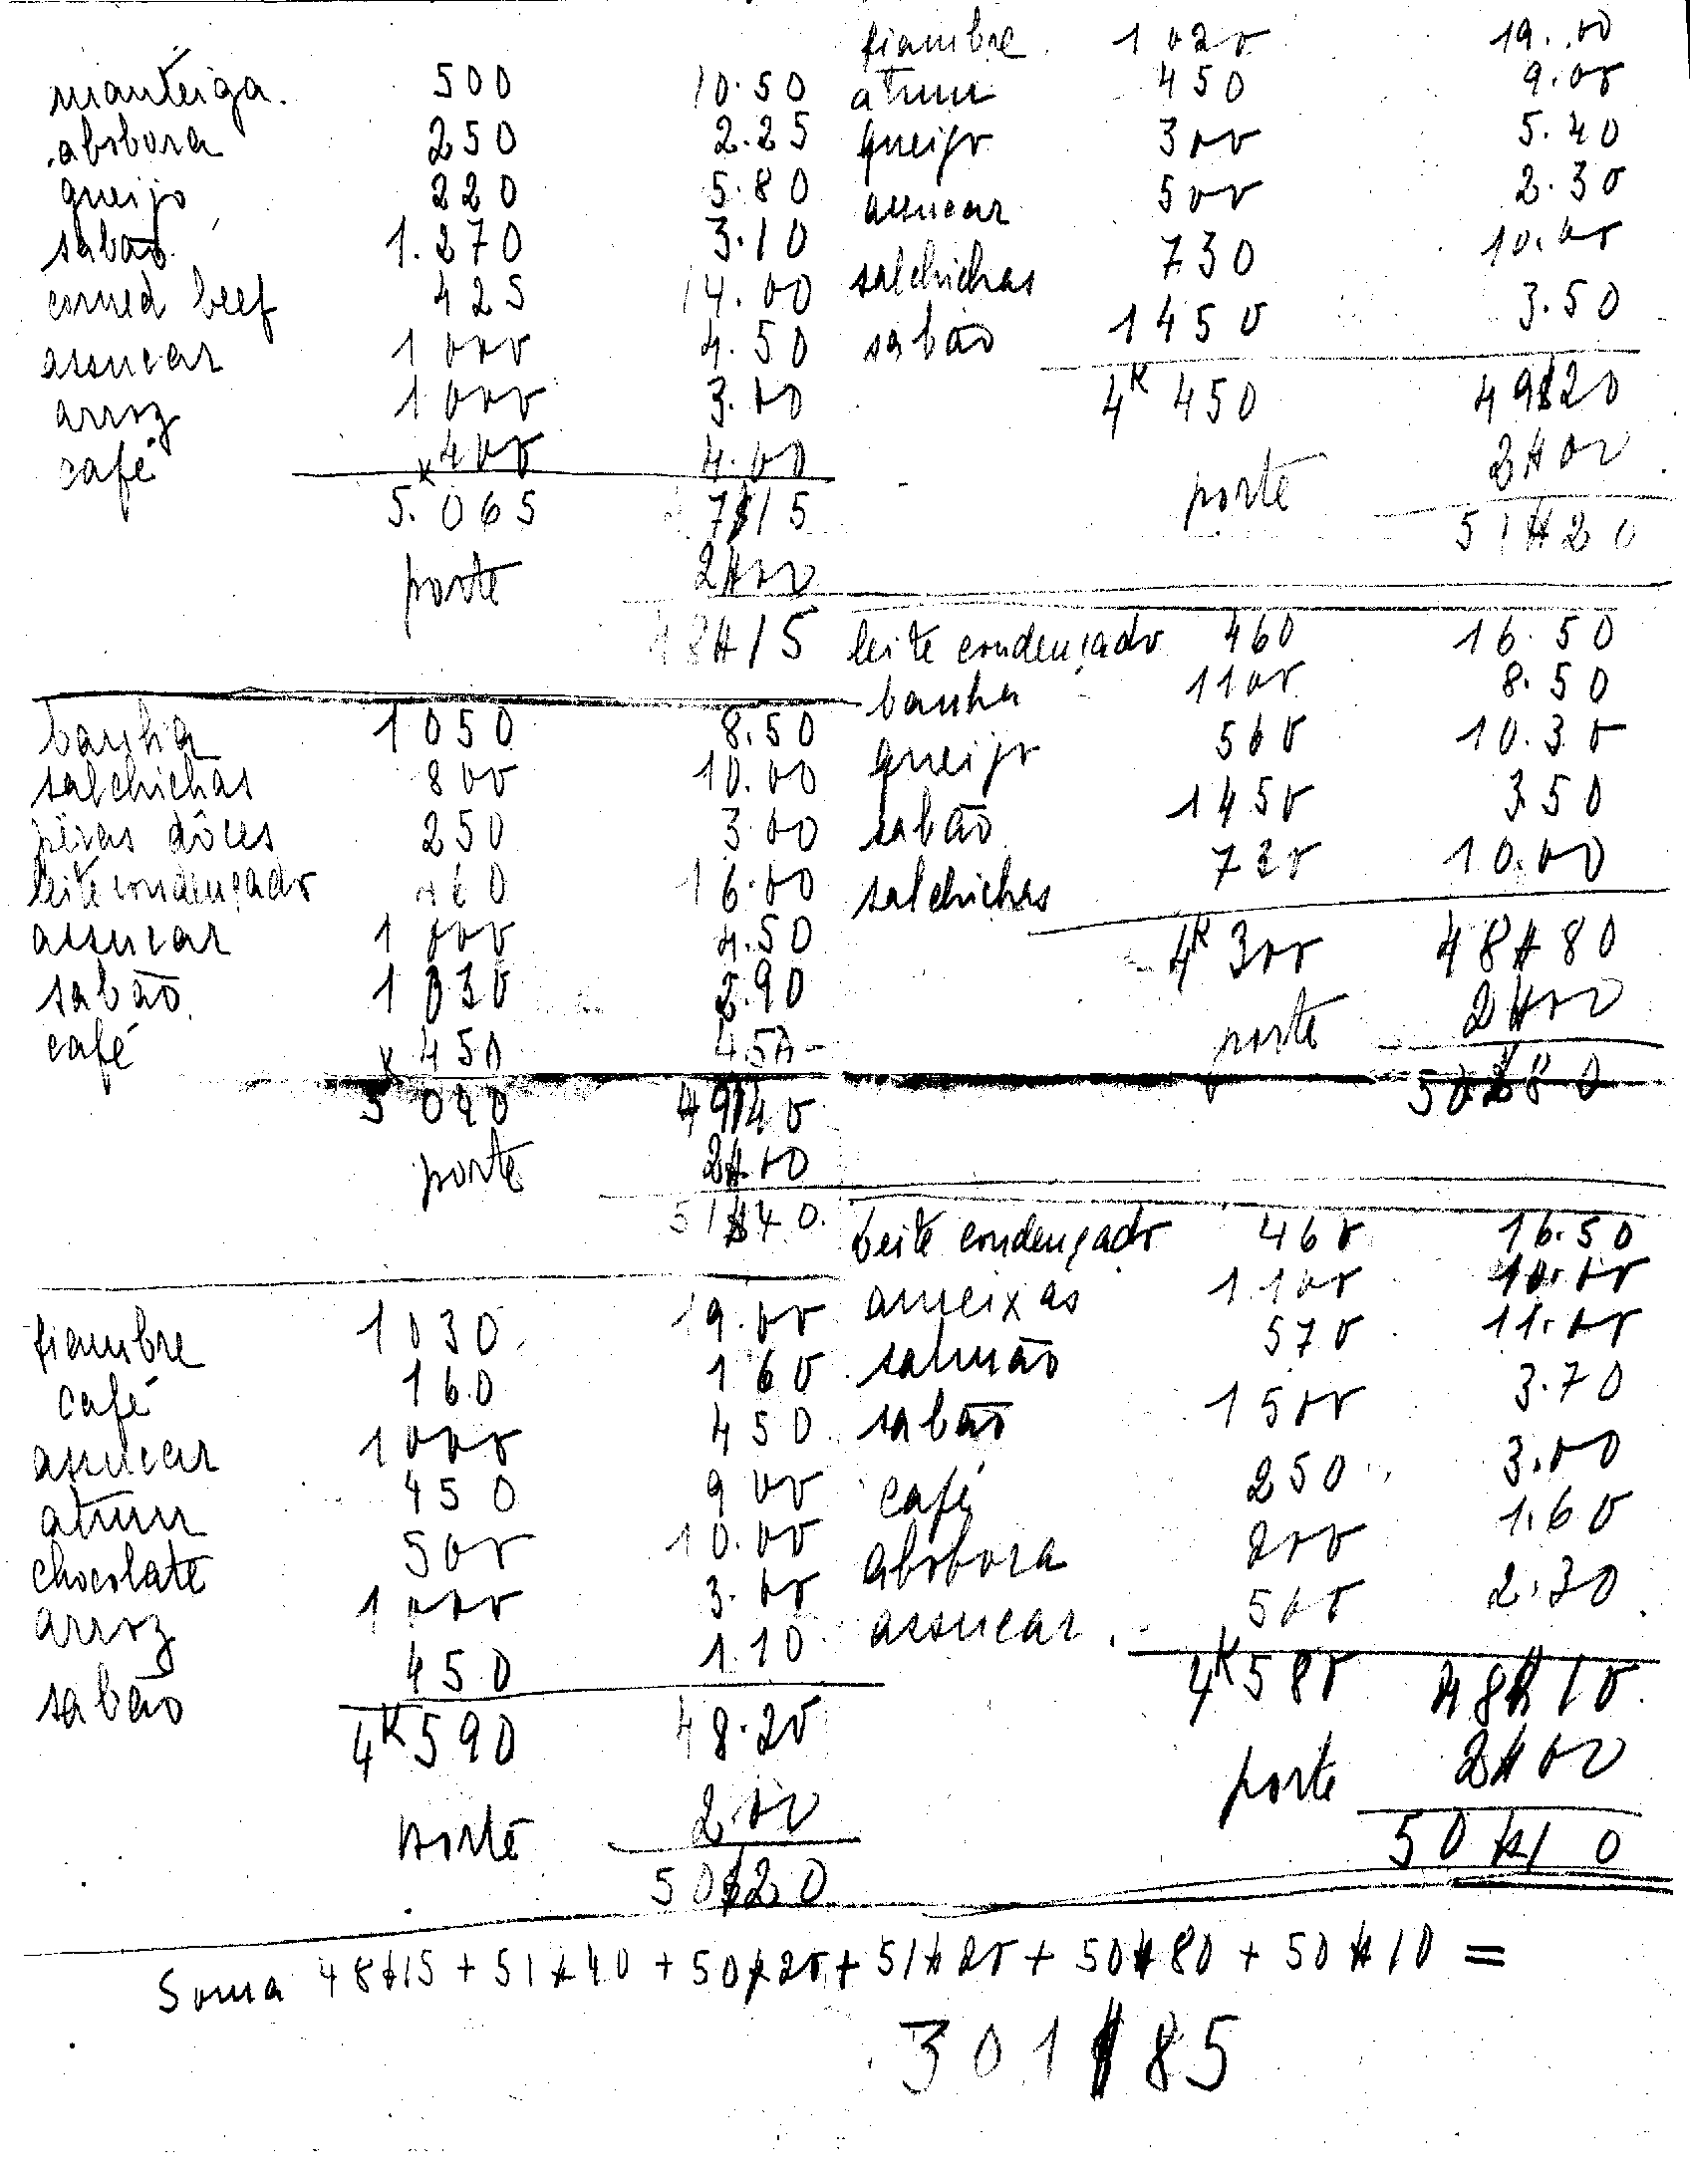 manteiga. 500 10.50
abobora 250 2.25
queijo 220 5.80
sabão 1.270 3.10
corned beef 425 14.00
assucar 1000 4.50
arroz 1000 3.00
café 400 4.00
5.K065
porte 2$00
48$15
banha 1050 8.50
salchichas 800 10.00
pêras dôces 250 3.00
leite condençado 460 16.00
assucar 1000 4.50
sabão 1030 2.90
café 450 4.5
5K 49$40
porte 2$00
51$40.
fiambre 1030 19.00
café 160 1 60
assucar 1000 4 50
atum 450 9 00
chocolate 500 10.00
arroz 1000 3.00
sabão 450 1.10
4K590 48.20
porte 2.00
50$20
fiambre 1020 19.00
atum 450 9.00
queijo 300 5.40
assucar 500 2.30
salchichas 730 10.00
sabão 1450 3.50
4K 450 49$20
porte 2$00
51$20
leite condençado 460 16.50
banha 1100 8.50
queijo 560 10.30
sabão 1450 3.50
salchichas 720 10.00
4K 300 48$80
porte 2$00
50$80
leite condençado 460 16.50
ameixas 1100 10.00
salmão 570 11.00
sabão 1500 3.70
café 250 3.00
abobora 200 1.60
assucar. 500 2.30
4K580 48$10
porte 2$00
50$10
Soma 48$15 + 51$40 + 50$20 + 51$20 + 50$80 + 50$10 =
301$85